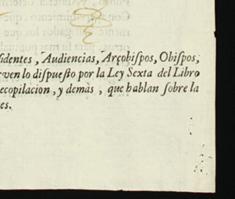 sidentes, Audiencias, Arçobispos, Obispos,
rven lo dispuesto por la Ley Sexta del Libro
ecopilacion, y demàs, que hablan sobre la
es.